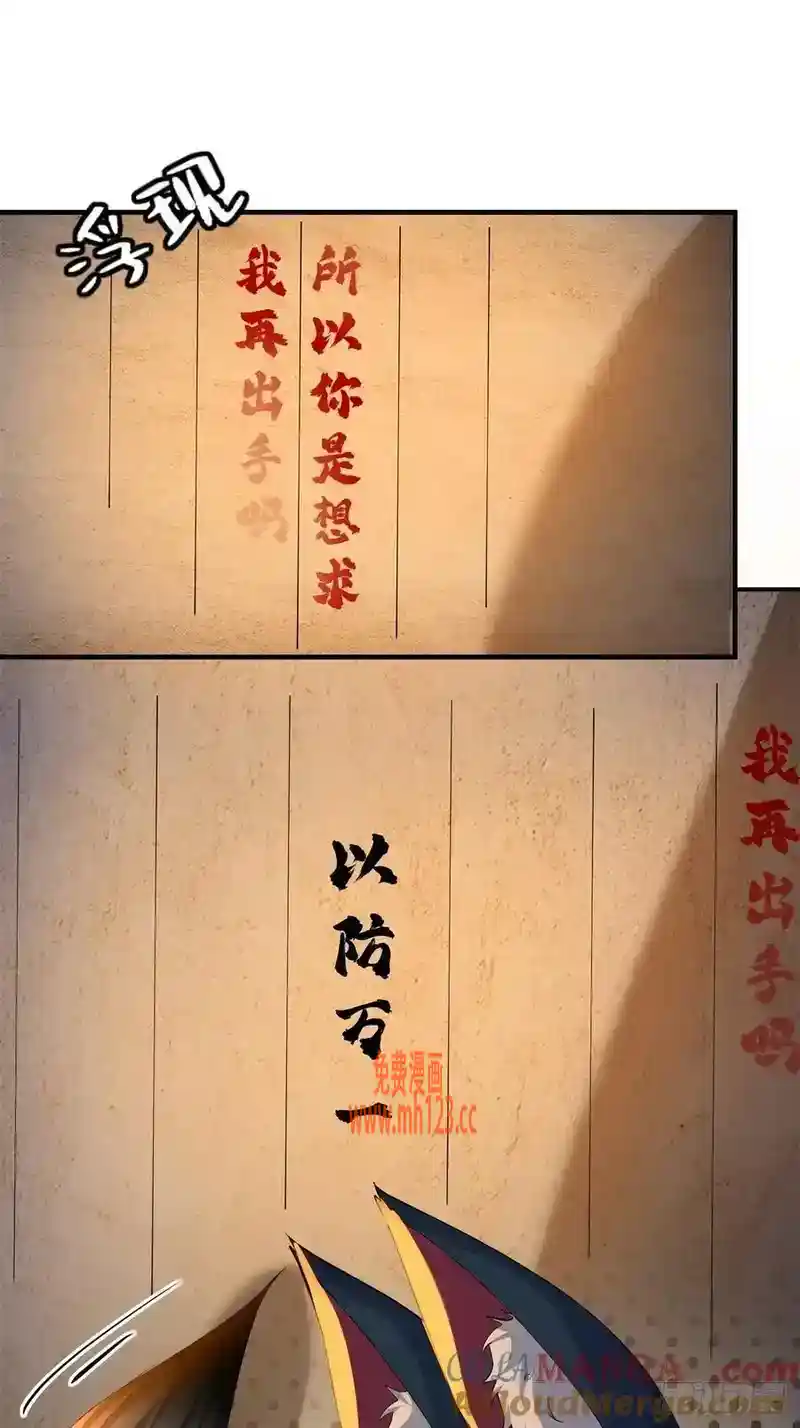 浮现
所以你是想求
我再出手吗
我再出手吗
以防万一
免费漫画
www.mh123.cc
COLAMANGA.com
AcloudMerge.com